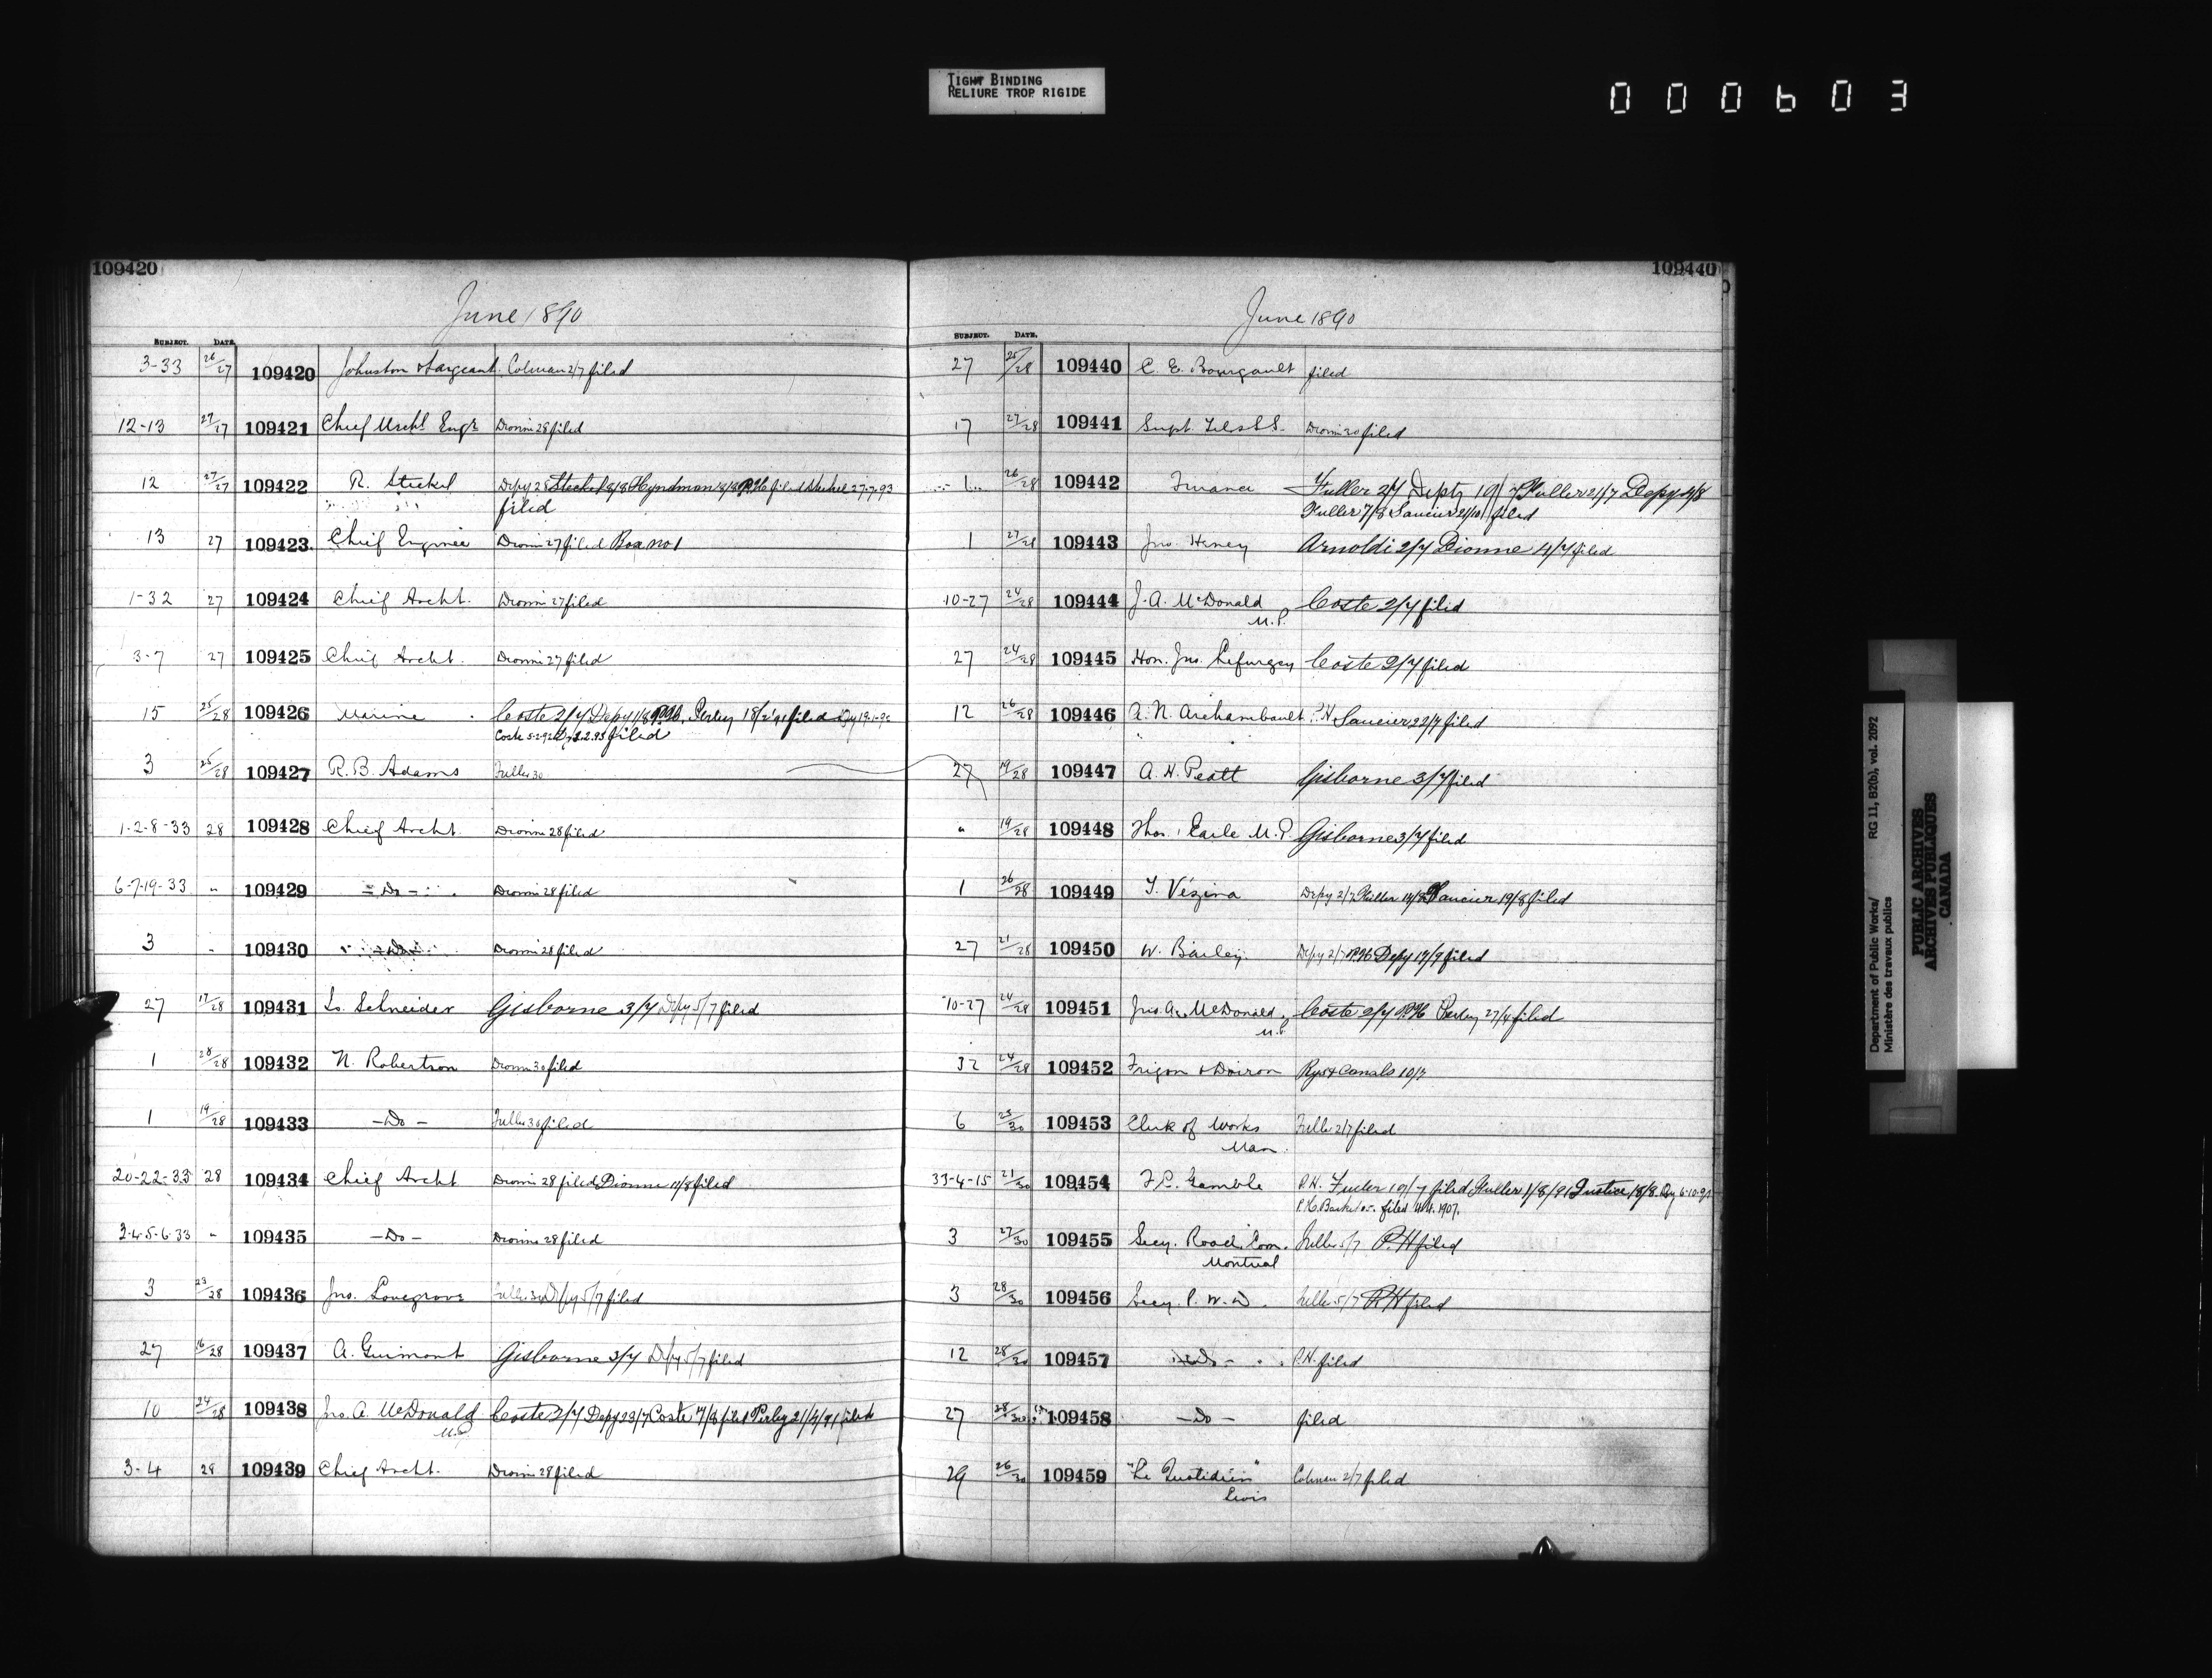 TIGHT BINDING
RELIURE TROP RIGIDE
000603
109420
June 1890
SUBJECT. DATE.
3-33 26/27 109420 Johnston & Sargeant Colman 2/7 filed
12-13 27/27 109421 Chief Mechl Engr Dionne 28 filed
12 27/27 109422 R. Steckel Depy 28 Steckel 8/8 Hyndman P.H. filed Steckel 27-7-93
filed
13 27 109423 Chief Engineer Dionne 27 filed Box no 1
1-32 27 109424 Chief Archt. Dionne 27 filed
3-7 27 109425 Chief Archt. Dionne 27 filed
15 25/28 109426 Marine Coste 2/7 Depy 1/8 P.H. Perley 18/2/91 filed
Coste 5-2-92 filed
3 25/28 109427 R. B. Adams Fuller 30
1-2-8-33 28 109428 Chief Archt. Dionne 28 filed
6-7-19-33 " 109429 - Do - Dionne 28 filed
3 " 109430 - Do - Dionne 28 filed
27 17/28 109431 Lo. Schneider Gisborne 3/7 Depy 5/7 filed
1 28/28 109432 N. Robertson Dionne 30 filed
1 19/28 109433 - Do - Fuller 30 filed
20-22-33 28 109434 Chief Archt Dionne 28 filed Dionne 11/8 filed
3-4-5-6-33 " 109435 - Do - Dionne 28 filed
3 23/28 109436 Jno. Lovegrove Fuller 30 Depy 5/7 filed
27 16/28 109437 A. Guimont Gisborne 3/7 Depy 5/7 filed
10 24/28 109438 Jno. A. McDonald Coste 2/7 Depy 23/7 Coste 7/8 filed Perley 21/4/91 filed
M.P.
3-4 28 109439 Chief Archt. Dionne 28 filed
109440
June 1890
SUBJECT. DATE.
27 25/28 109440 C. E. Bourgault filed
17 27/28 109441 Supt. Tels Dionne 30 filed
1 26/28 109442 Finance Fuller 2/7 Depty 19/7 Fuller 21/7 Depy 4/8
Fuller 7/8 Saucier 21/10 filed
1 27/28 109443 Jno. Haney Arnoldi 2/7 Dionne 4/7 filed
10-27 24/28 109444 J. A. McDonald Coste 2/7 filed
M.P.
27 24/28 109445 Hon. Jno. Lefurgey Coste 2/7 filed
12 26/28 109446 A. N. Archambault P.H. Saucier 22/7 filed
27 19/28 109447 A. H. Peatt Gisborne 3/7 filed
" 19/28 109448 Thos. Earle M.P. Gisborne 3/7 filed
1 26/28 109449 T. Vézina Depy 2/7 Fuller Saucier 19/8 filed
27 21/28 109450 W. Bailey Depy 2/7 P.H. Depy 17/9 filed
10-27 24/28 109451 Jno. A. McDonald Coste 2/7 P.H. Perley 27/4 filed
M.P.
32 24/28 109452 Frigon & Doiron Rys & Canals 10/7
6 25/30 109453 Clerk of Works Fuller 2/7 filed
Man.
33-4-15 21/30 109454 F. C. Gamble P.H. Fuller 10/7 filed Fuller 1/8/91 Justice 18/8
filed 1907.
3 27/30 109455 Secy. Road Com. Fuller 5/7 P.H filed
Montreal
3 28/30 109456 Secy. P. W. D. Fuller 5/7 P.H filed
12 28/30 109457 - Do - P.H. filed
27 28/30 109458 - Do - filed
29 26/30 109459 "Le Quotidien" Colman 2/7 filed
Levis
Department of Public Works/ RG 11, B2(b), vol. 2092
Ministère des travaux publics
PUBLIC ARCHIVES
ARCHIVES PUBLIQUES
CANADA